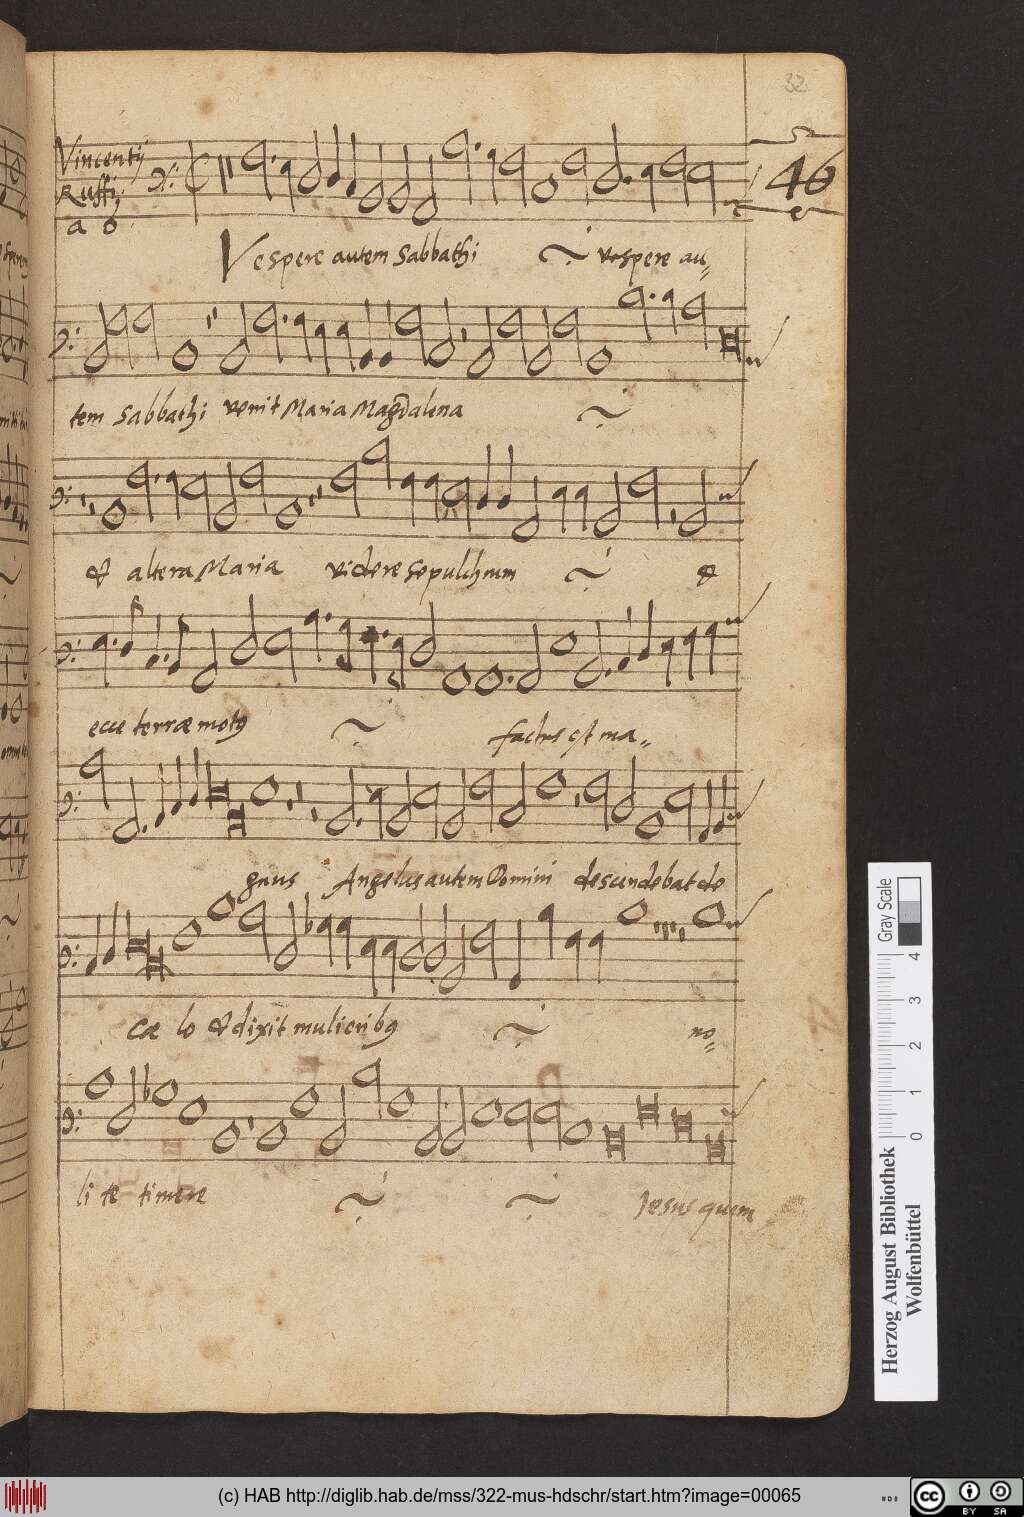 32
46
Vincentij
Ruffi
a 6
Vespere autem Sabbathi vespere au=
tem Sabbathi venit Maria Magdalena
& altera Maria videre sepulchrum &
ecce terræ motꝰ factus est ma=
gnus Angelus autem Domini descendebat de
cæ lo & dixit mulieribꝰ no=
li te timere Jesus quem
Gray Scale
0 1 2 3 4
Herzog August Bibliothek
Wolfenbüttel
(c) HAB http://diglib.hab.de/mss/322-mus-hdschr/start.htm?image=00065
cc
BY SA